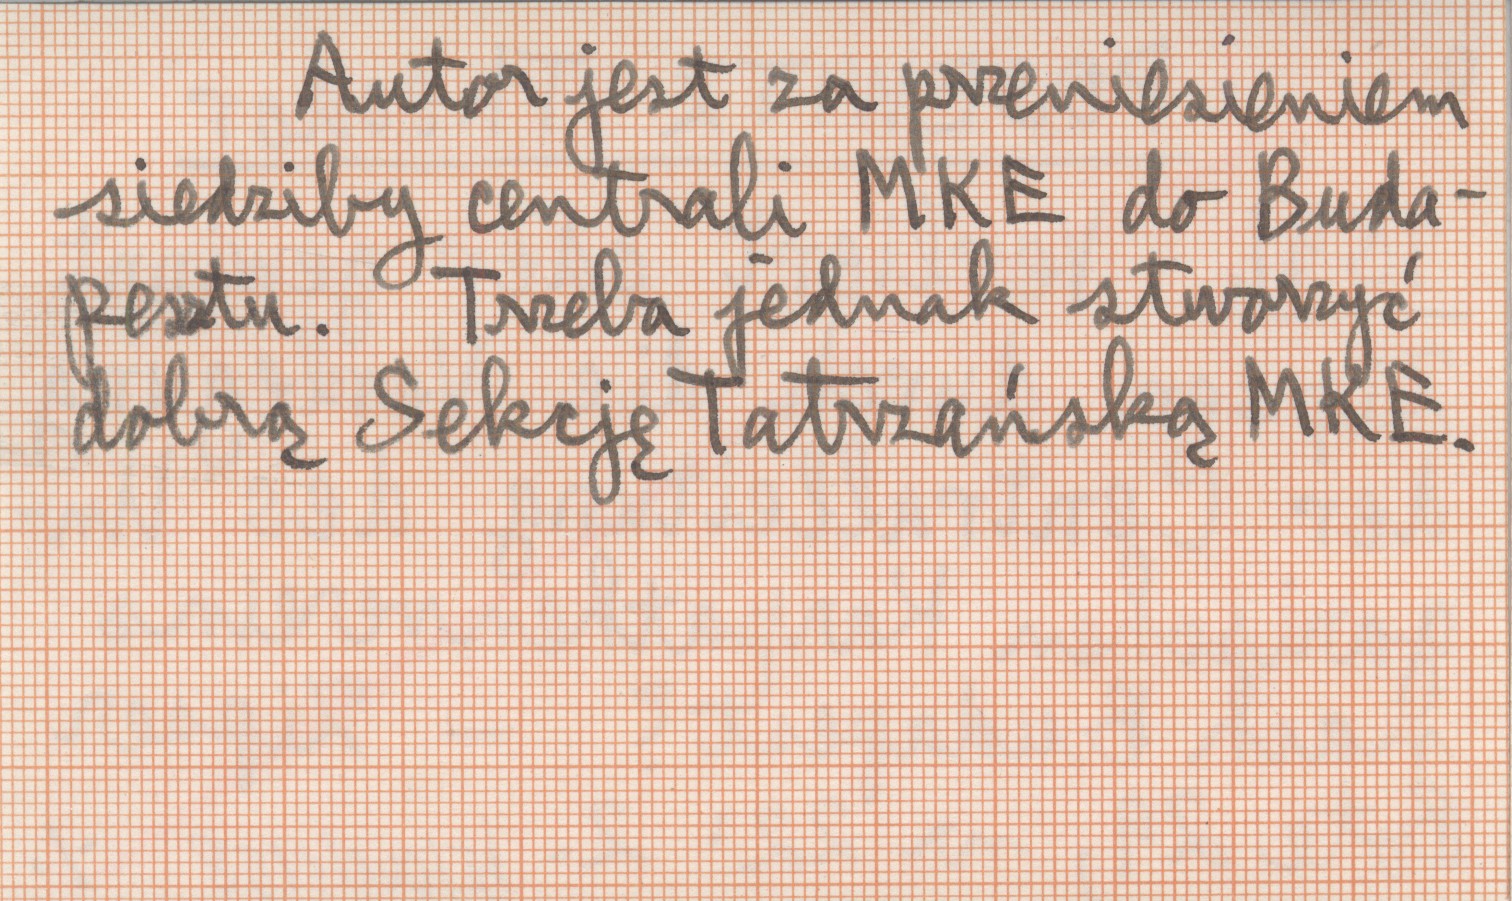 Autor jest za przeniesieniem
siedziby centrali MKE do Buda-
pesztu. Trzeba jednak stworzyć
dobrą Sekcję Tatrzańską MKE.